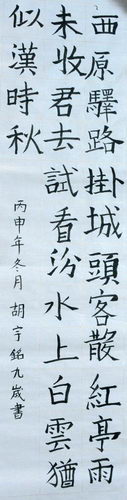 西原驛路掛城頭客散紅亭雨
未收君去試看汾水上白雲猶
似漢時秋
丙申年冬月 胡宇銘九歲書